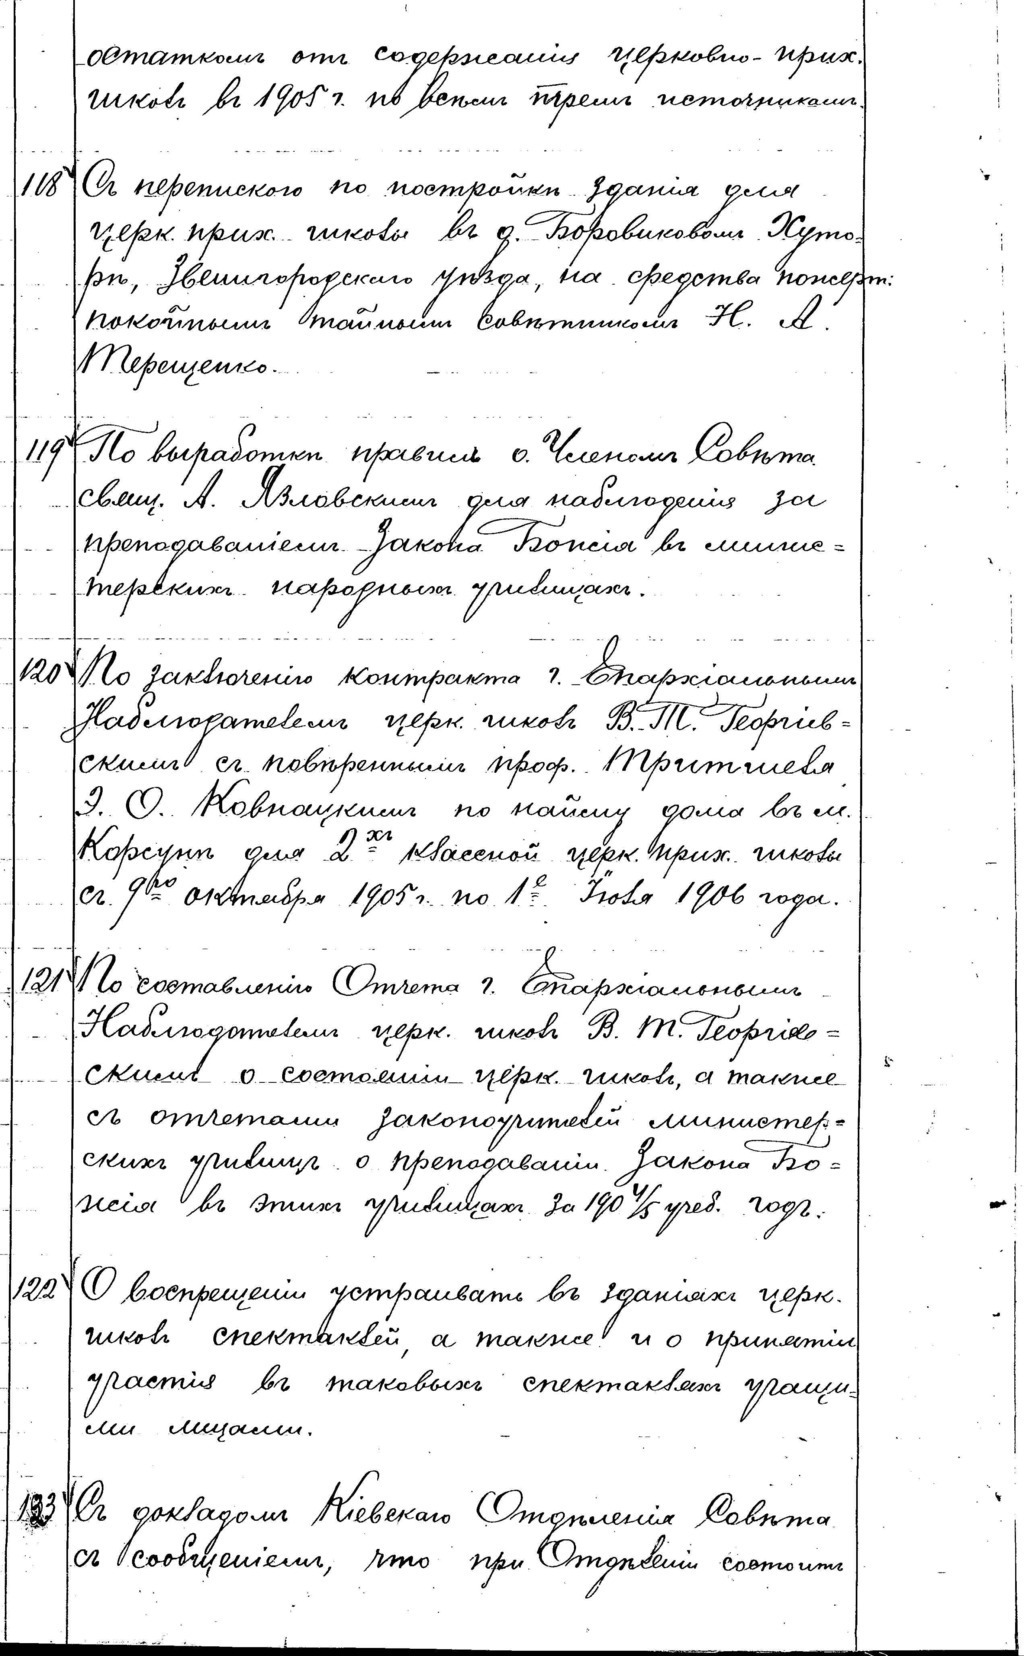 остаткомъ отъ содержанія церковно-прих.
школъ въ 1905 г. по всѣмъ тремъ источникамъ.
118 Съ перепискою по постройкѣ зданія для
церк. прих. школы въ д. Боровиковомъ Хуто-
рѣ, Звенигородскаго уѣзда, на средства пожертв:
покойнымъ тайнымъ совѣтникомъ Н. А.
Терещенко.
119 По выработкѣ правилъ о. Членомъ Совѣта
свящ. А. Язловскимъ для наблюденія за
преподаваніемъ Закона Божія въ минис=
терскихъ народныхъ училищахъ.
120 По заключенію контракта г. Епархіальнымъ
Наблюдателемъ церк. школъ В. Т. Георгіев=
скимъ съ повѣреннымъ проф. Притшеля
Э. О. Ковнацкимъ по найму дома въ м.
Корсунѣ для 2хъ классной церк. прих. школы
съ 9го октября 1905 г. по 1е Іюля 1906 года.
121 По составленію Отчета г. Епархіальнымъ
Наблюдателемъ церк. школъ В. Т. Георгіев=
скимъ о состояніи церк. школъ, а также
съ отчетами законоучителей министер=
скихъ училищъ о преподаваніи Закона Бо=
жія въ этихъ училищахъ за 190 4/5 учеб. годъ.
122 О воспрещеніи устраивать въ зданіяхъ церк.
школъ спектаклей, а также и о принятіи
участія въ таковыхъ спектакляхъ учащи-
ми лицами.
123 Съ докладомъ Кіевскаго Отдѣленія Совѣта
съ сообщеніемъ, что при Отдѣленіи состоитъ